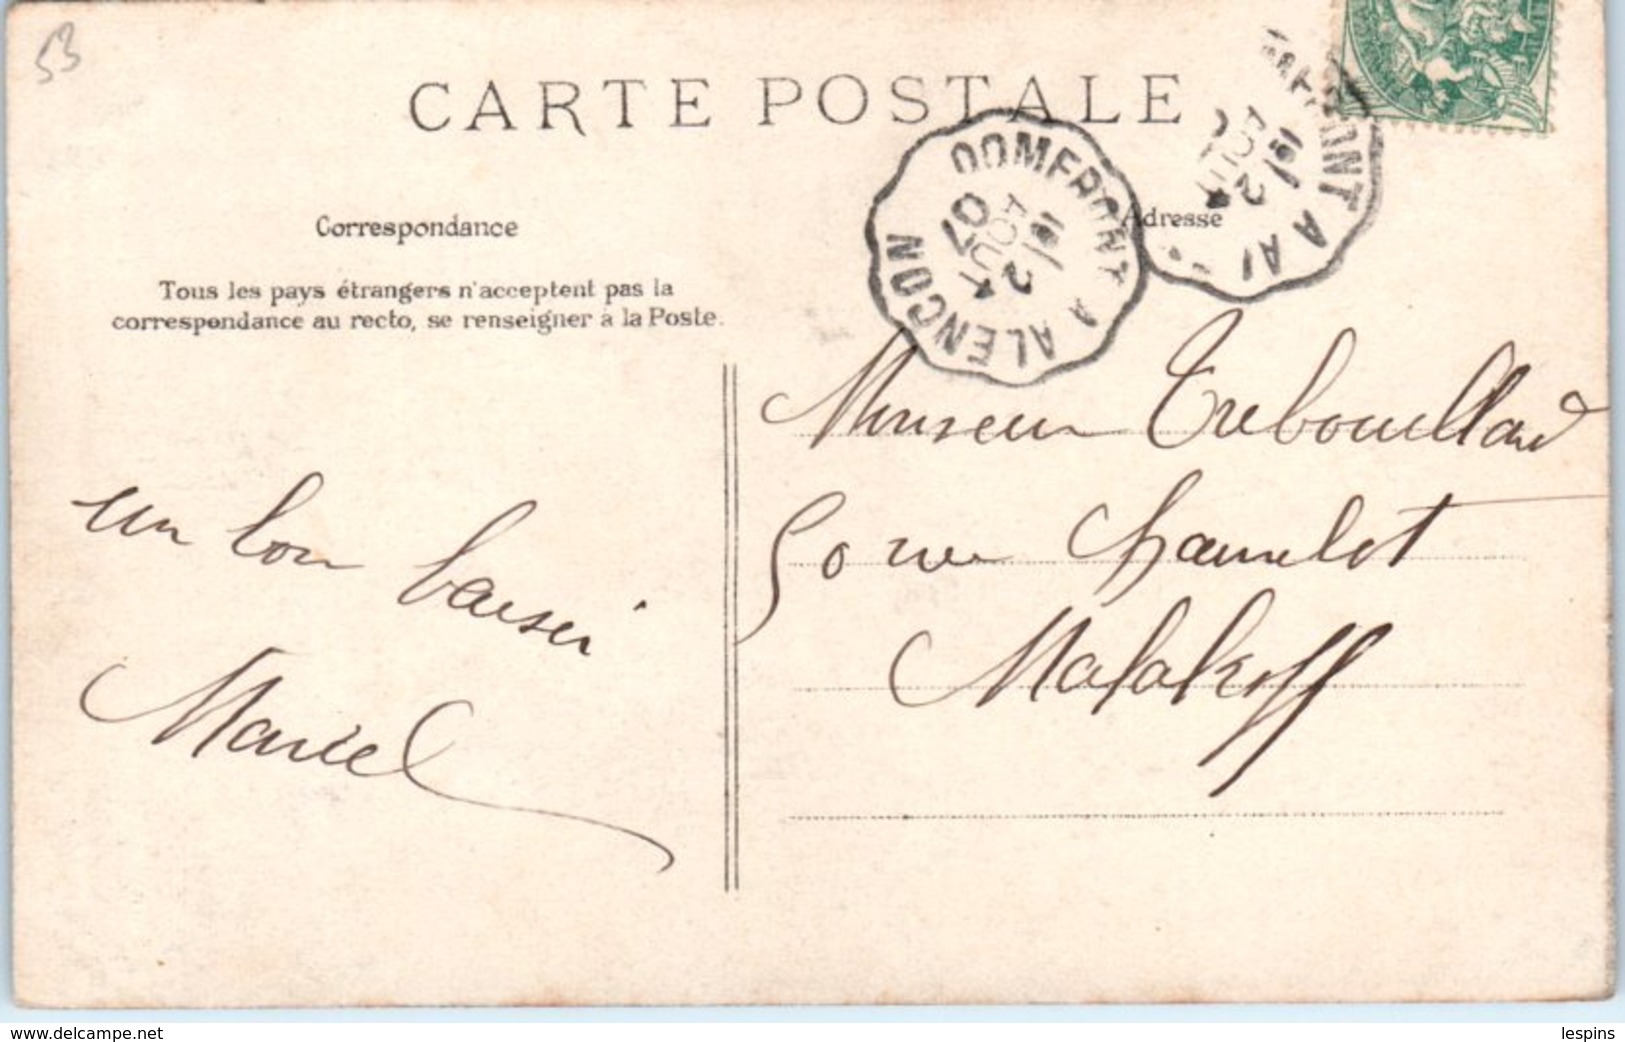 53
CARTE POSTALE
DOMFRONT A ALENCON
1e/2
AOUT
07
DOMFRONT A AL
1e/2
AOUT
Correspondance
Adresse
Tous les pays étrangers n'acceptent pas la
correspondance au recto, se renseigner à la Poste.
un bon baiser
Marcel
Monsieur Trebouillard
50 rue Chamelot
Malakoff
www.delcampe.net
lespins